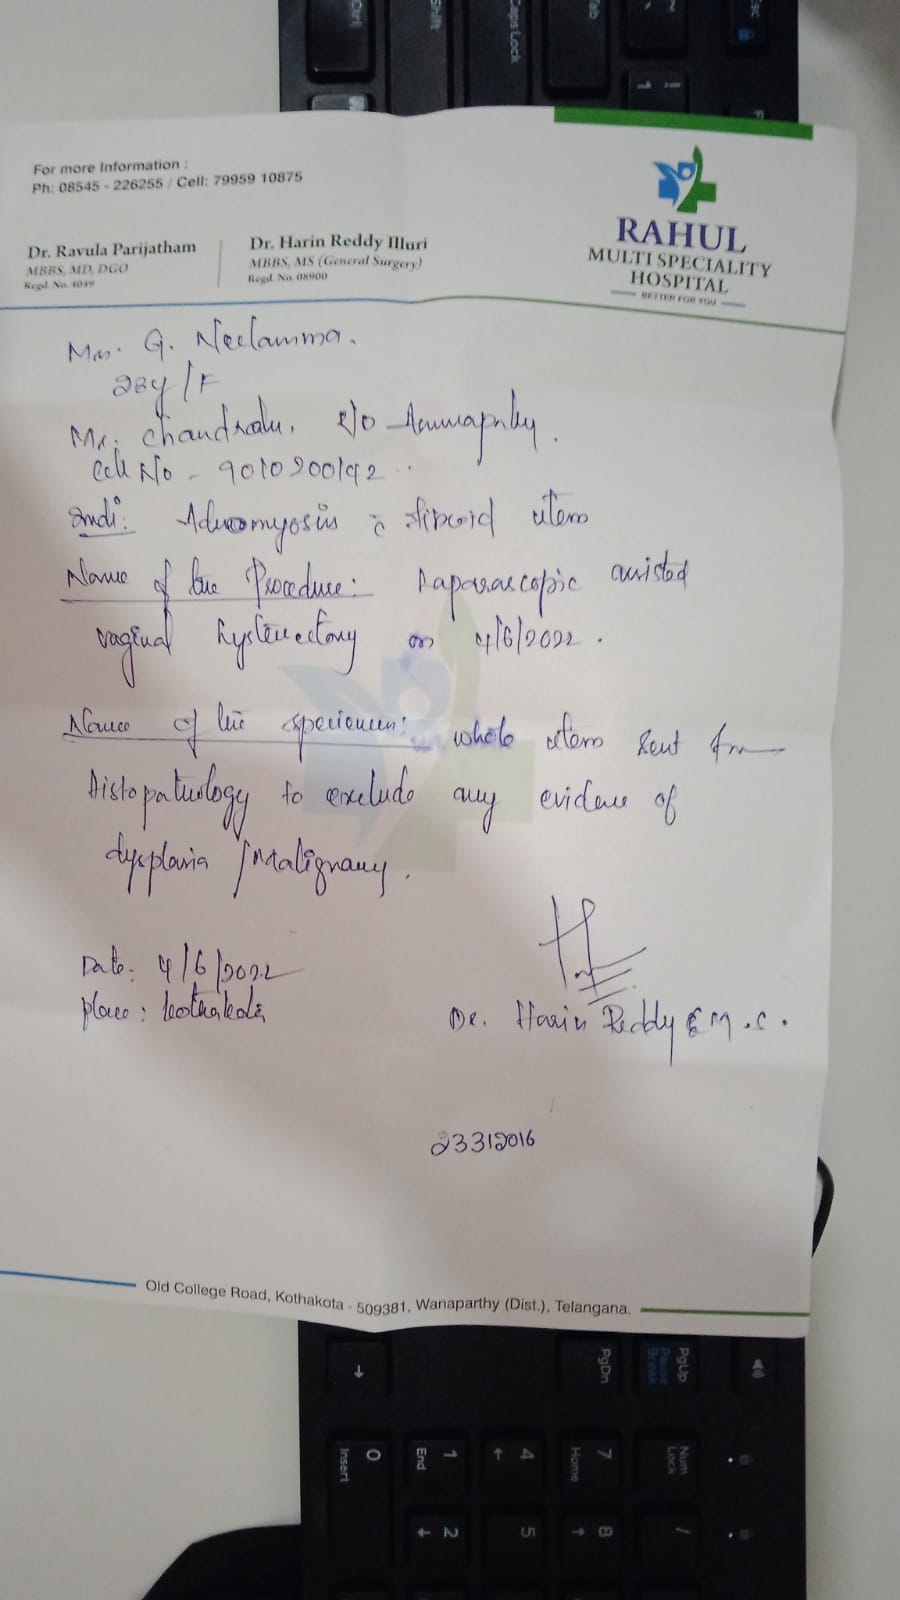 For more Information :
Ph: 08545 - 226255 / Cell: 79959 10875
Dr. Ravula Parijatham
MBBS, MD, DGO
Regd. No. 4049
Dr. Harin Reddy Illuri
MBBS, MS (General Surgery)
Regd. No. 08900
RAHUL
MULTI SPECIALITY
HOSPITAL
BETTER FOR YOU
Mrs. G. Neelamma.
28y/F
Mr. Chandraiah, R/O
Cell No - 9010200192
Indi: Adenomyosis c̄ fibroid uterus
Name of the Procedure: Laparascopic assisted
vaginal hysterectomy on 4/6/2022.
Name of the specimen: whole uterus sent for
Histopathology to exclude any evidence of
dysplasia / Malignancy.
Date: 4/6/2022
place: kothakota
Dr. Harin Reddy
23312016
Old College Road, Kothakota - 509381, Wanaparthy (Dist.), Telangana.
Ctrl
Shift
Caps Lock
Tab
Esc
PgDn
PgUp
Pause
Break
0
Insert
1
End
4
7
Home
Num
Lock
2
5
8
/